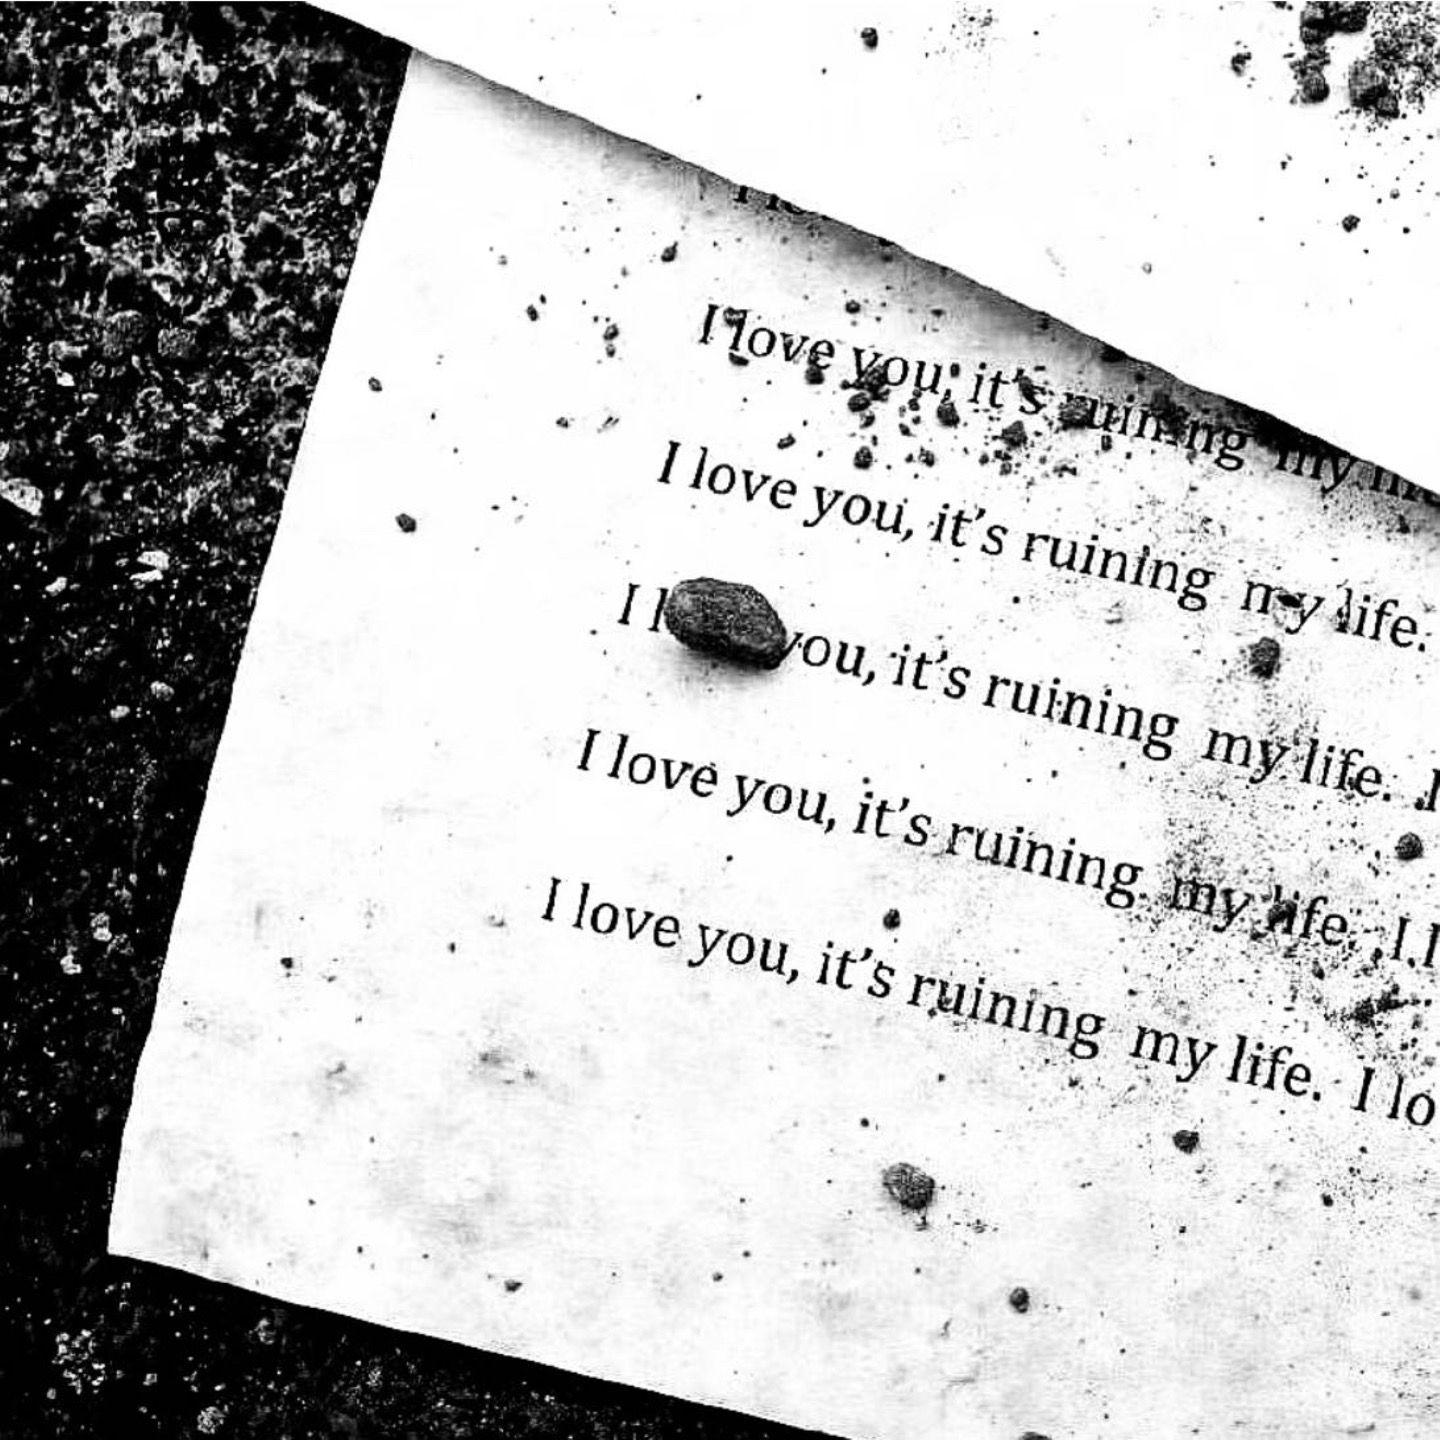 I love you, it's ruining my
I love you, it's ruining my life.
I you, it's ruining my life. I
I love you, it's ruining my life. I l
I love you, it's ruining my life. I lo